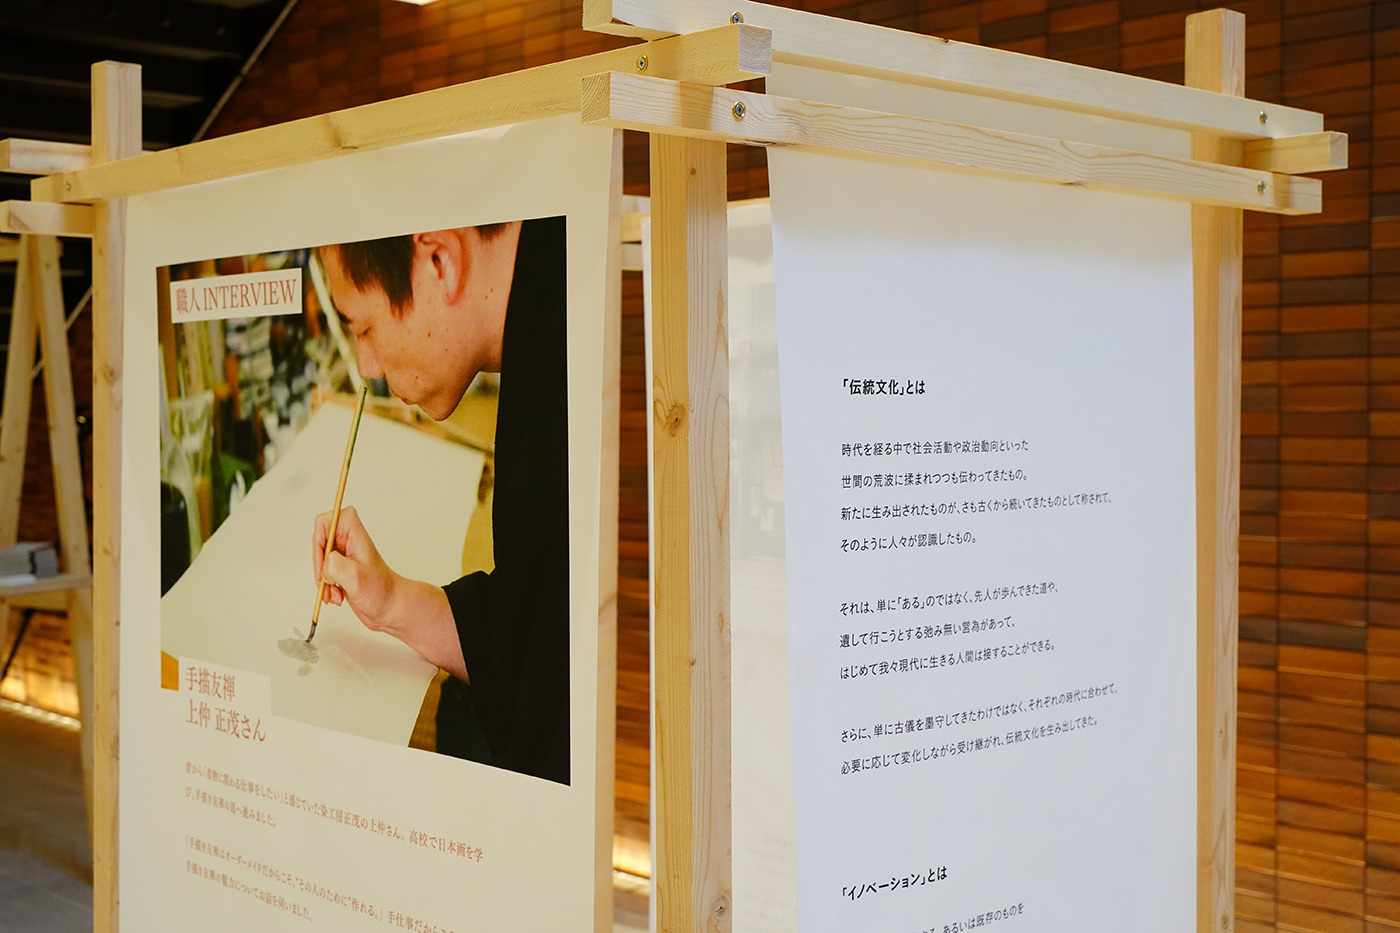 職人 INTERVIEW
手描友禅
上仲 正茂さん
昔から「着物に関わる仕事をしたい」と感じていた染工房正茂の上仲さん。高校で日本画を学
び、手描き友禅の道へ進みました。
「手描き友禅はオーダーメイドだからこそ、“その人のために”作れる。」手仕事だから
手描き友禅の魅力についてお話を伺いました。
「伝統文化」とは
時代を経る中で社会活動や政治動向といった
世間の荒波に揉まれつつも伝わってきたもの。
新たに生み出されたものが、さも古くから続いてきたものとして称されて、
そのように人々が認識したもの。
それは、単に「ある」のではなく、先人が歩んできた道や、
遺して行こうとする弛み無い営為があって、
はじめて我々現代に生きる人間は接することができる。
さらに、単に古儀を墨守してきたわけではなく、それぞれの時代に合わせて、
必要に応じて変化しながら受け継がれ、伝統文化を生み出してきた。
「イノベーション」とは
あるいは既存のものを